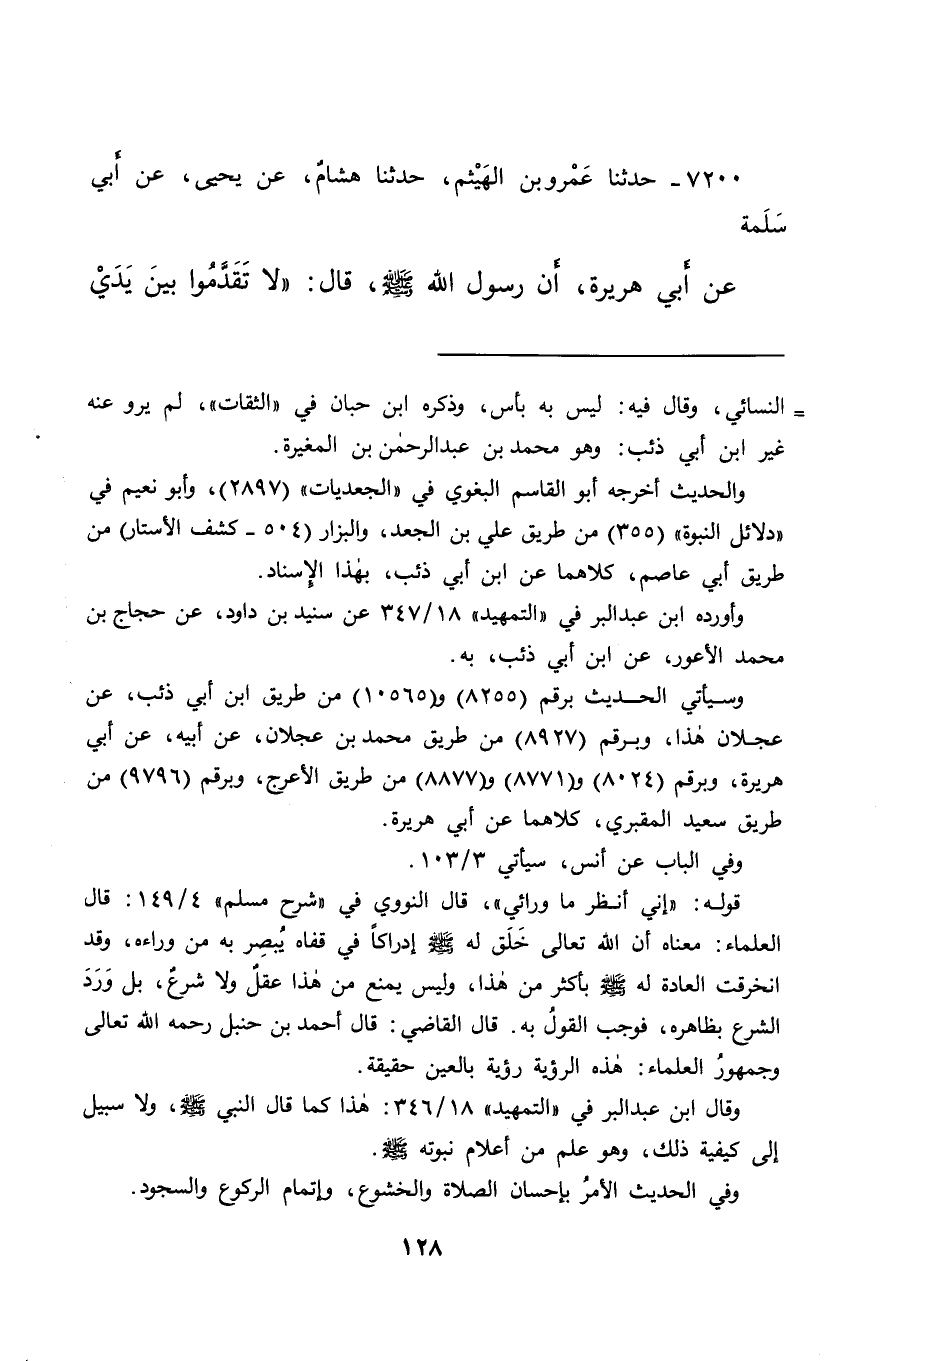 ٧٢٠٠ـ حدثنا عَمْرو بن الهَيْثم، حدثنا هشامٌ، عن يحيى، عن أَبي
سَلَمة
عن أَبي هريرة، أَن رسول الله ﷺ، قال: «لا تَقَدَّمُوا بينَ يَدَيْ
= النسائي، وقال فيه: ليس به بأس، وذكره ابن حبان في «الثقات»، لم يرو عنه
غير ابن أبي ذئب: وهو محمد بن عبدالرحمٰن بن المغيرة.
والحديث أخرجه أبو القاسم البغوي في «الجعديات» (٢٨٩٧)، وأبو نعيم في
«دلائل النبوة» (٣٥٥) من طريق علي بن الجعد، والبزار (٥٠٤ ـ كشف الأستار) من
طريق أبي عاصم، كلاهما عن ابن أبي ذئب، بهٰذا الإِسناد.
وأورده ابن عبدالبر في «التمهيد» ٣٤٧/١٨ عن سنيد بن داود، عن حجاج بن
محمد الأعور، عن ابن أبي ذئب، به.
وسيأتي الحديث برقم (٨٢٥٥) و(١٠٥٦٥) من طريق ابن أبي ذئب، عن
عجلان هٰذا، وبرقم (٨٩٢٧) من طريق محمد بن عجلان، عن أبيه، عن أبي
هريرة، وبرقم (٨٠٢٤) و(٨٧٧١) و(٨٨٧٧) من طريق الأعرج، وبرقم (٩٧٩٦) من
طريق سعيد المقبري، كلاهما عن أبي هريرة.
وفي الباب عن أنس، سيأتي ١٠٣/٣.
قوله: «إني أنظر ما ورائي»، قال النووي في «شرح مسلم» ١٤٩/٤: قال
العلماء: معناه أن الله تعالى خَلَق له ﷺ إدراكاً في قفاه يُبصِر به من وراءه، وقد
انخرقت العادة له ﷺ بأكثر من هٰذا، وليس يمنع من هٰذا عقلٌ ولا شرعٌ، بل وَرَدَ
الشرع بظاهره، فوجب القولُ به. قال القاضي: قال أحمد بن حنبل رحمه الله تعالى
وجمهورُ العلماء: هٰذه الرؤية رؤية بالعين حقيقة.
وقال ابن عبدالبر في «التمهيد» ٣٤٦/١٨: هٰذا كما قال النبي ﷺ، ولا سبيل
إلى كيفية ذلك، وهو علم من أعلام نبوته ﷺ.
وفي الحديث الأمرُ بإحسان الصلاة والخشوع، وإتمام الركوع والسجود.
١٢٨